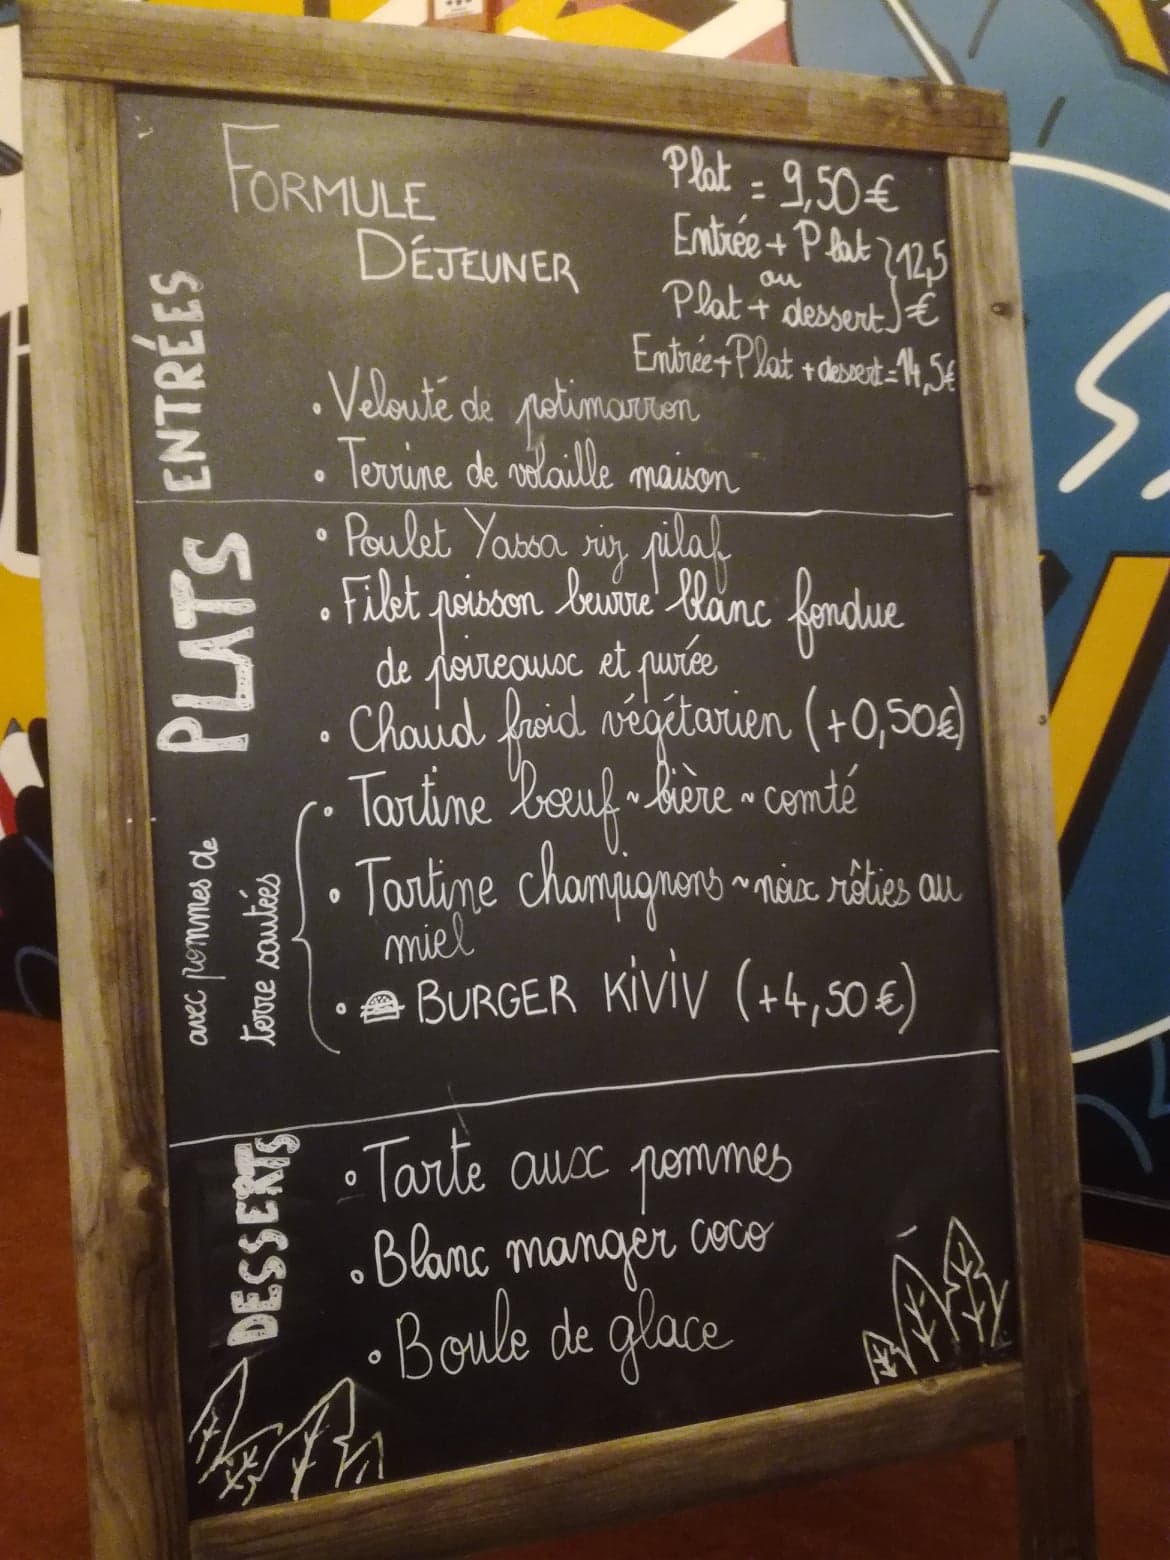 FORMULE
DÉJEUNER
Plat = 9,50€
Entrée + Plat } 12,5
ou
Plat + dessert } €
Entrée+Plat + dessert = 14,5€
ENTRÉES
• Velouté de potimarron
• Terrine de volaille maison
PLATS
• Poulet Yassa riz pilaf
• Filet poisson beurre blanc fondue
de poireaux et purée
• Chaud froid végétarien (+0,50€)
avec pommes de
terre sautées
• Tartine bœuf ~ bière ~ comté
• Tartine champignons ~ noix rôties au
miel
• BURGER KIVIV (+4,50€)
DESSERTS
• Tarte aux pommes
• Blanc manger coco
• Boule de glace